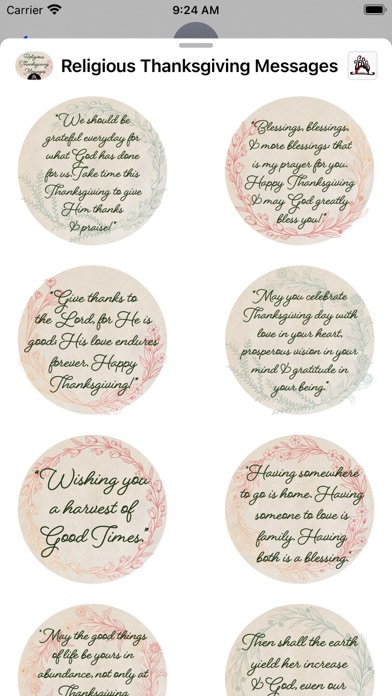 Carrier 9:24 AM
Religious
Thanksgiving
Messages
Religious Thanksgiving Messages
"We should be
grateful everyday for
what God has done
for us. Take time this
Thanksgiving to give
Him thanks
& praise!"
"Blessings, blessings,
& more blessings that
is my prayer for you.
Happy Thanksgiving
& may God greatly
bless you!"
"Give thanks to
the Lord, for He is
good; His love endures
forever. Happy
Thanksgiving!"
"May you celebrate
Thanksgiving day with
love in your heart,
prosperous vision in your
mind & gratitude in
your being."
"Wishing you
a harvest of
Good Times."
"Having somewhere
to go is home. Having
someone to love is
family. Having
both is a blessing."
"May the good things
of life be yours in
abundance, not only at
Thanksgiving
Then shall the earth
yield her increase
& God, even our